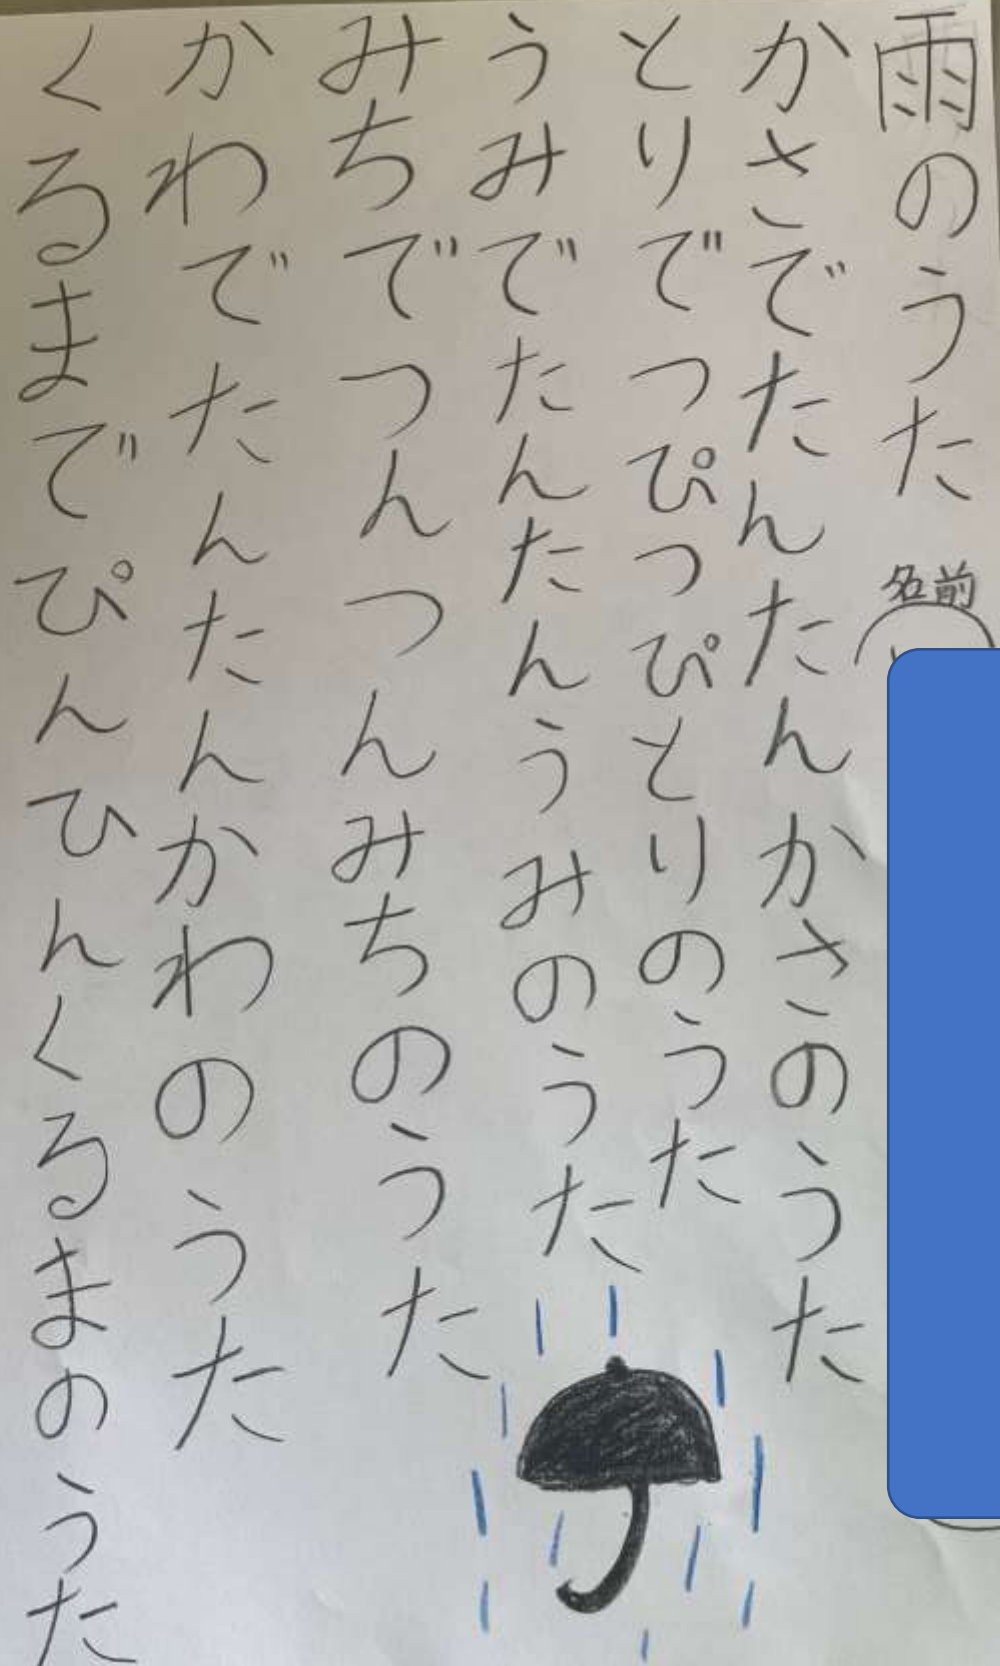 雨のうた
名前
かさでたんたんかさのうた
とりでつぴつぴとりのうた
うみでたんたんうみのうた
みちでつんつんみちのうた
かわでたんたんかわのうた
くるまでぴんひんくるまのうた